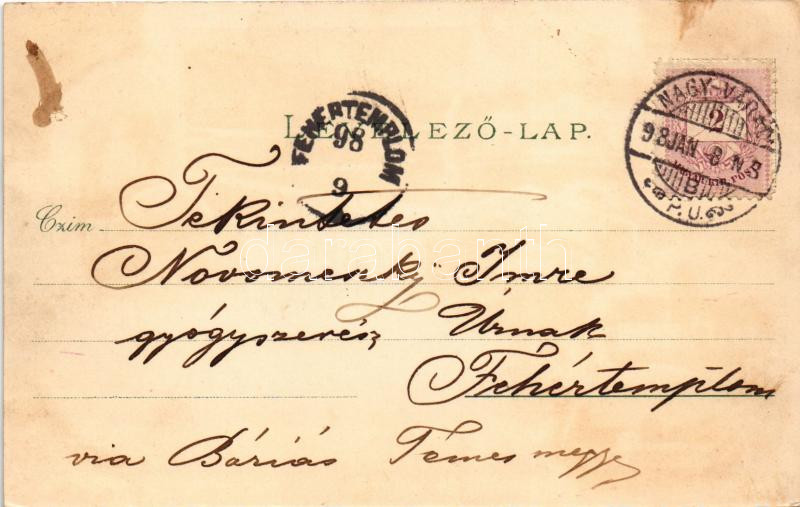 LEVELEZŐ-LAP.
FEHÉRTEMPLOM
98
9
NAGY-VÁRAD
2
98 JAN. 8 N. 5
P.U.
Czim
Tekintetes
Novomeszky Imre
gyógyszerész Urnak
Fehértemplom
via Báziás Temes megye
darabanth